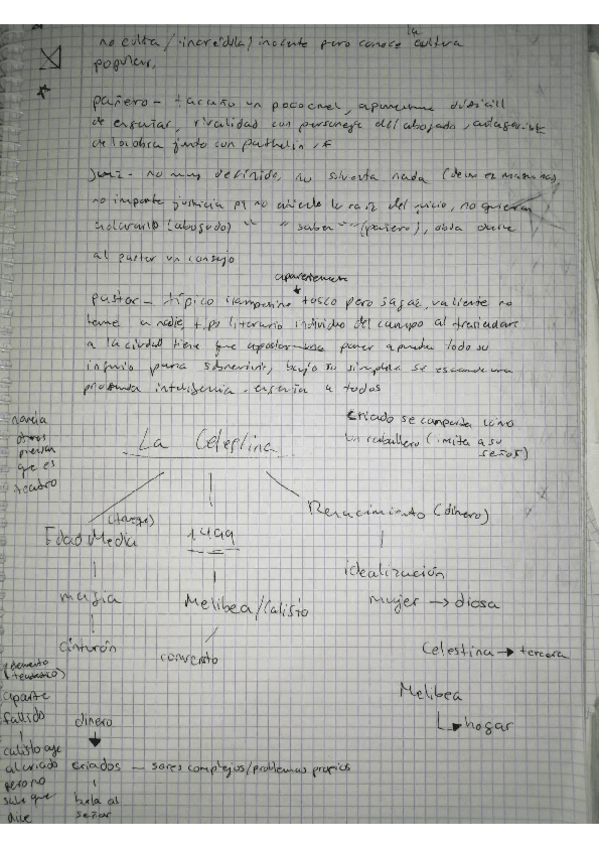 no culta / incrédula / inocente pero conoce la cultura
popular,
pañero - tacaño un poco cruel, aparentemente difícil
de engañar, rivalidad con personaje del abogado, antagonista
de la obra junto con pathelin
juez - no muy definido, no solventa nada
no importa justicia pq no entiende la raíz del juicio, no quieren
aclararlo (abogado) " " saber " " (pañero),
al pastor un consejo
aparentemente
pastor - típico campesino tosco pero sagaz, valiente no
teme a nadie, tipo literario individuo del campo al trasladarse
a la ciudad tiene que poner a prueba todo su
ingenio para sobrevivir, bajo su simpleza se esconde una
profunda inteligencia - engaña a todos
criado se comporta como
un caballero (imita a su
señor)
novela
otros
piensan
que es
teatro
La Celestina
Edad Media
1499
Renacimiento (dinero)
magia
Melibea/Calisto
idealización
mujer → diosa
cinturón
convento
Celestina → tercera
Melibea
hogar
elemento
aparte
fallido
calisto oye
al criado
pero no
sabe que
dice
dinero
criados - seres complejos/problemas propios
señor